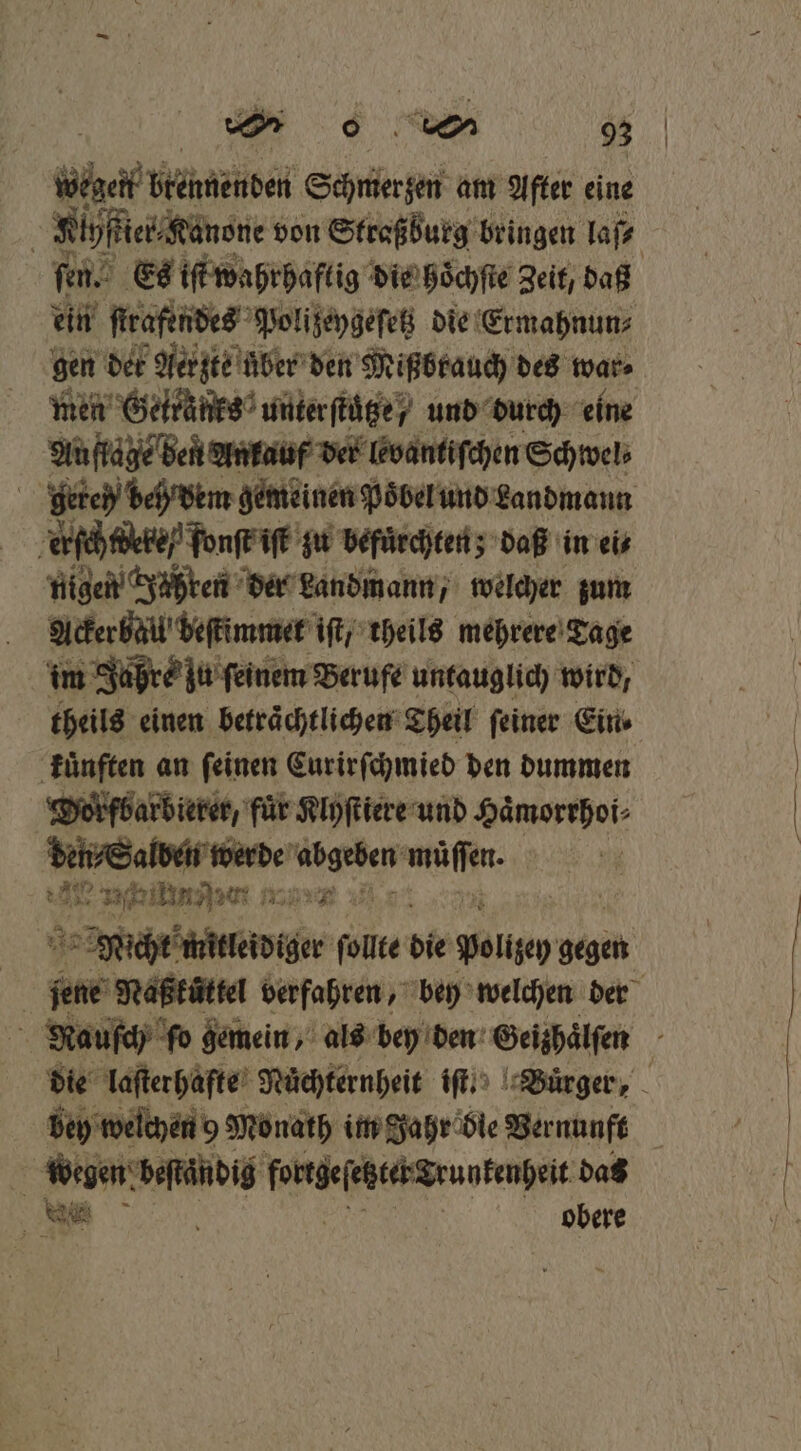 o 93
wegen brennenden Schmerzen am After eine
Klyſtier-Kanone von Straßburg bringen laſ-
ſen. Es iſt wahrhaftig die hoͤchſte Zeit, daß
ein ſtrafendes Polizeygeſetz die Ermahnun-
gen der Aerzte uͤber den Mißbrauch des war-
men Getraͤnks unterſtuͤtze, und durch eine
Auflage den Ankauf der levantiſchen Schwel-
gerey bey dem gemeinen Poͤbel und Landmann
erſchwere, ſonſt iſt zu befuͤrchten; daß in ei-
nigen Jahren der Landmann, welcher zum
Ackerbau beſtimmet iſt, theils mehrere Tage
im Jahre zu ſeinem Berufe untauglich wird,
theils einen betraͤchtlichen Theil ſeiner Ein-
kuͤnften an ſeinen Curirſchmied den dummen
Dorfbarbierer, fuͤr Klyſtiere und Haͤmorrhoi-
den-Salben werde abgeben muͤſſen.
Nicht mitleidiger ſollte die Polizey gegen
jene Naßkuͤttel verfahren, bey welchen der
Rauſch ſo gemein, als bey den Geizhaͤlſen
die laſterhafte Nuͤchternheit iſt. Buͤrger,
bey welchen 9 Monath im Jahr die Vernunft
wegen beſtaͤndig fortgeſetzter Trunkenheit das
obere